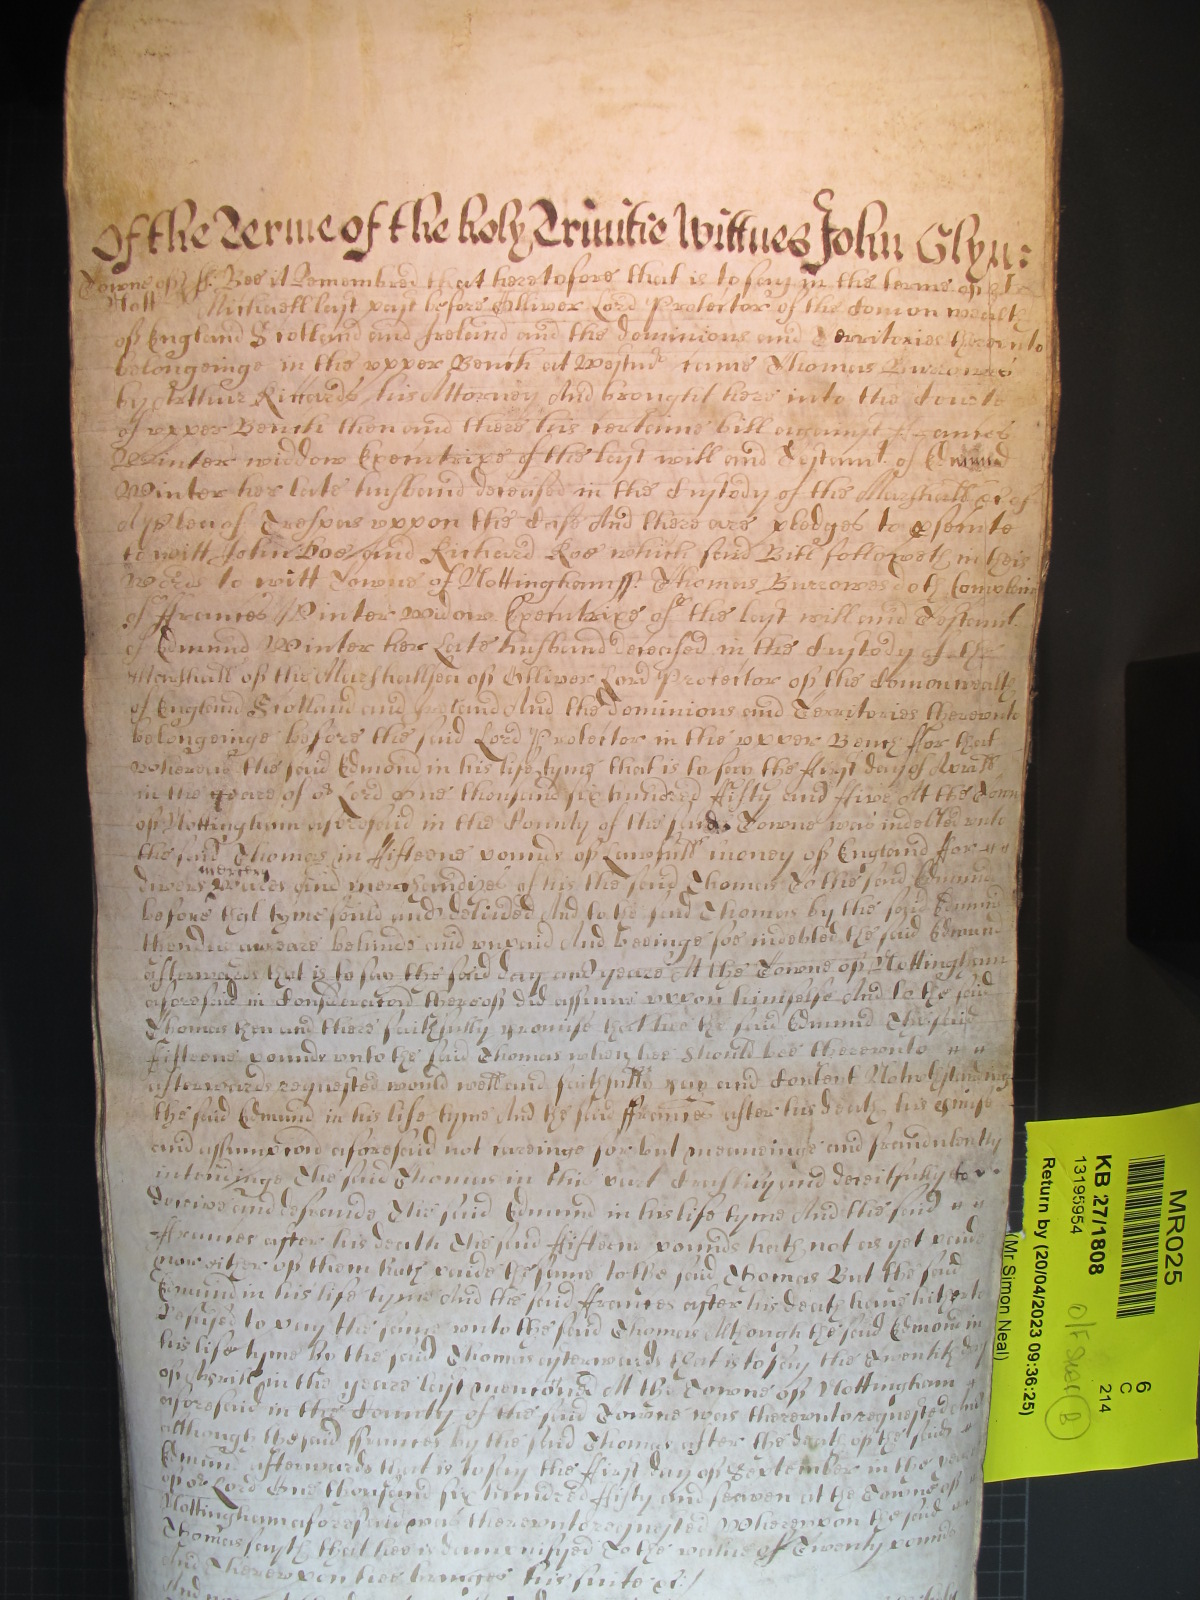 Of the Terme of the holy Trinitie Wittnes John Glyn:
Towne of ss. Bee it Remembred that heretofore that is to say in the terme of St
Nott Michaell last past before Olliver Lord Protector of the Comon wealth
of England Scotland and Ireland and the dominions and Territories thereunto
belongeinge in the upper Bench at Westmr came Thomas Burrowes
by Arthur Rickards his Attorney And brought here into the Courte
of upper Bench then and there his certaine bill against Frances
Winter widdow Executrixe of the last will and Testamt. of Edmund
Winter her late husband deceased in the Custody of the Marshall &c of
a plea of Trespas uppon the Case And there are pledges to prosecute
to witt John Doe and Richard Roe which said Bill followeth in theis
words to witt Towne of Nottingham ss. Thomas Burrowes doth Complaine
of Frances Winter Widow Executrixe of the last will and Testamt.
of Edmund Winter her Late husband deceased in the Custody of the
Marshall of the Marshallsea of Olliver Lord Protector of the Comonwealth
of England Scotland and Ireland And the Dominions and Territories thereunto
belongeinge before the said Lord Protector in the upper Bench ffor that
whereas the said Edmond in his life tyme that is to say the first day of Aprill
in the yeare of or Lord one thousand six hundred ffifty and ffive At the Towne
of Nottingham aforesaid in the County of the said Towne was indebted unto
the said Thomas in ffifteene pounds of Lawfull money of England ffor
divers Wares and merchandizes of his the said Thomas To the said Edmund
before that tyme sould and delivered And to the said Thomas by the said Edmund
then in arreare behinde and unpaid And beeinge soe indebted the said Edmund
afterwards that is to say the said day and yeare At the Towne of Nottingham
aforesaid in Consideracon thereof did assume uppon himselfe And to the said
Thomas then and there faithfully promise that hee the said Edmund The said
fifteene pounds unto the said Thomas when hee should bee thereunto
afterwards requested would well and faithfully pay and Content Notwithstanding
the said Edmund in his life tyme And the said ffrances after his death his promise
and assumpcion aforesaid not careinge for but meaneinge and fraudulently
intendinge The said Thomas in this part Craftily and deceitfully to
deceive and defraude The said Edmund in his life tyme And the said
ffrances after his death The said ffifteene pounds hath not as yet paide
nor either of them hath paide the same to the said Thomas But the said
Edmund in his life tyme And the said ffrances after his death have hitherto
Refused to pay the same unto the said Thomas Although the said Edmond in
his life tyme by the said Thomas afterwards that is to say the Twentieth day
of Aprill in the yeare last mencioned At the Towne of Nottingham
aforesaid in the County of the said Towne was thereunto requested And
although the said ffrances by the said Thomas after the death of the said
Edmund afterwards that is to say the first day of September in the yeare
of or Lord One thousand six hundred ffifty and seaven at the Towne of
Nottingham aforesaid was thereunto requested Whereupon the said
Thomas sayth that hee is damnified To the value of Twenty pounds
And Thereuppon hee bringes his suite &c /
MR025
6
C
214
KB 27/1808
13195954
Return by (20/04/2023 09:36:25)
(Mr Simon Neal)